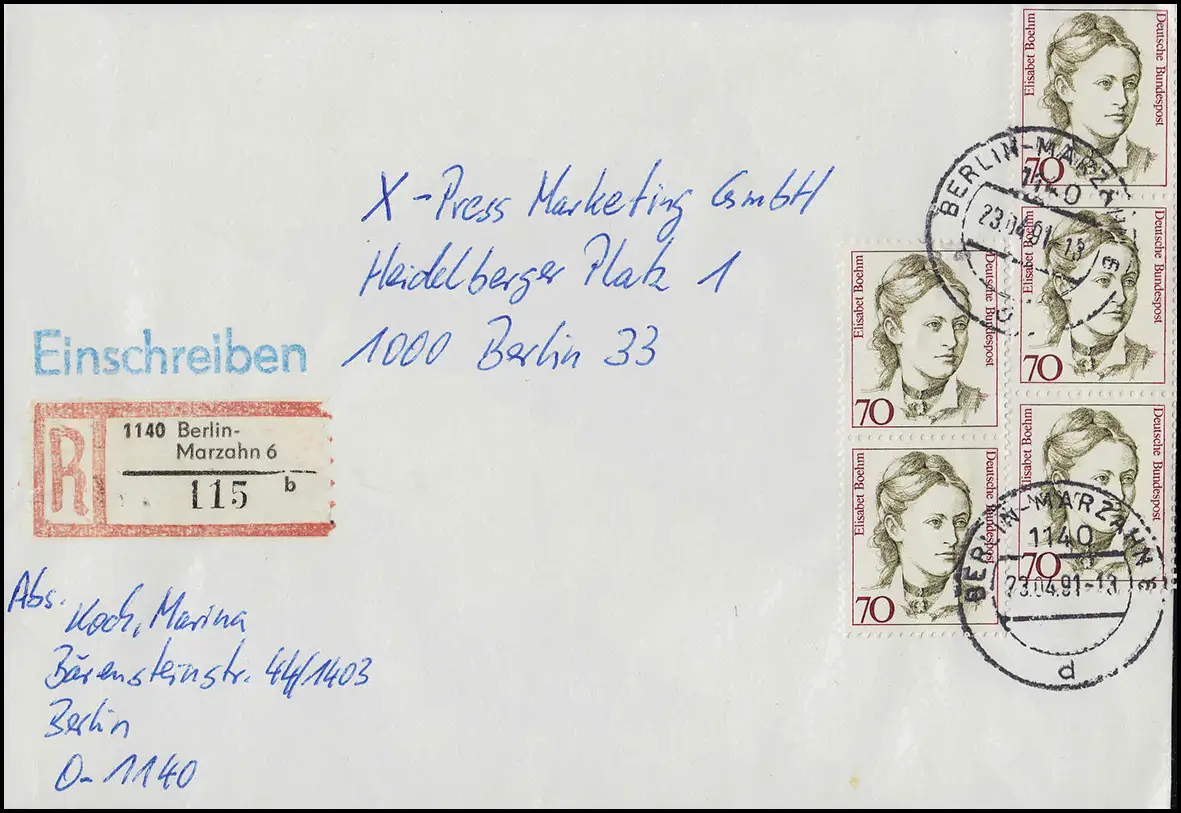 X-Press Marketing GmbH
Heidelberger Platz 1
1000 Berlin 33
Einschreiben
R
1140 Berlin-
Marzahn 6
115 b
Abs.
Koch, Marina
Bärensteinstr. 44/1403
Berlin
O-1140
Elisabet Boehm
Deutsche Bundespost
70
Elisabet Boehm
Deutsche Bundespost
70
Elisabet Boehm
Deutsche Bundespost
70
Elisabet Boehm
Deutsche Bundespost
70
Elisabet Boehm
Deutsche Bundespost
70
BERLIN-MARZAHN
1140
23.04.91-13
BERLIN-MARZAHN
1140
23.04.91-13
d